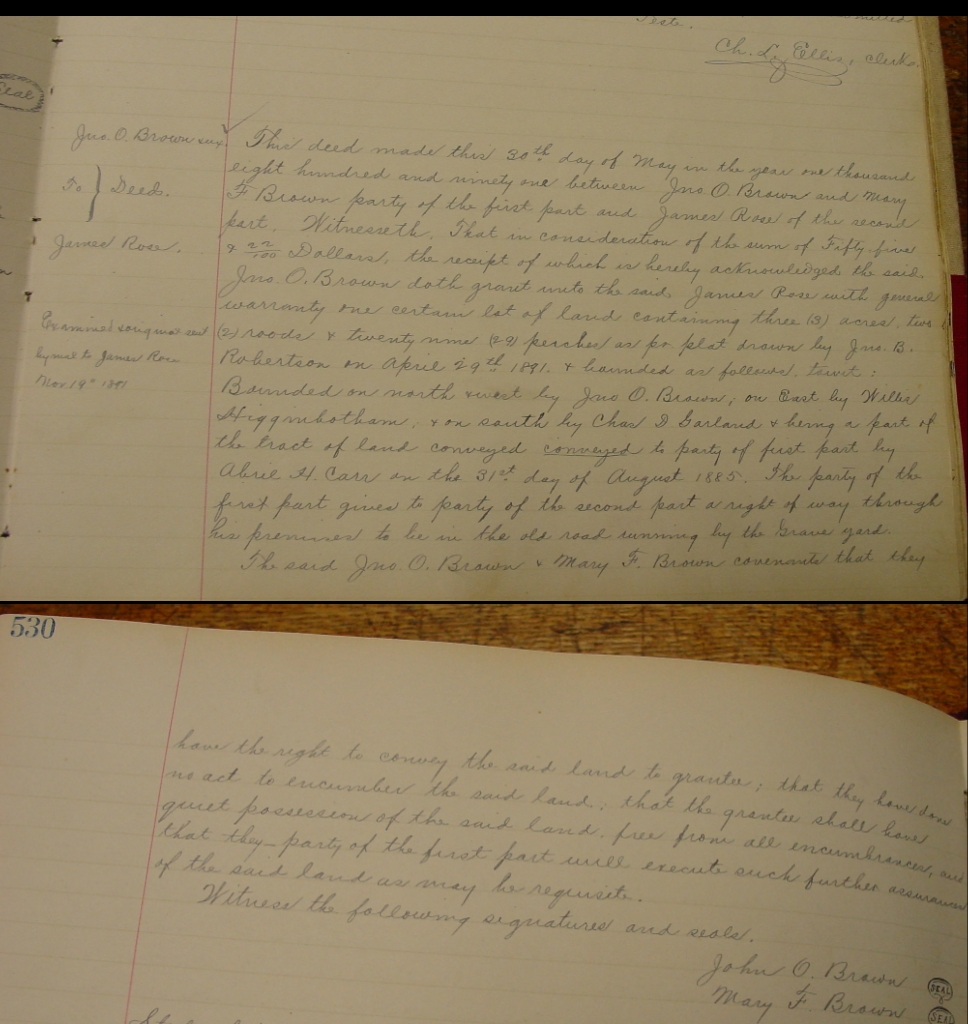 Teste.
Ch. L. Ellis, clerk.
Seal
Jno. O. Brown &ux.
To } Deed.
James Rose.
Examined & original sent
by mail to James Rose
Nov. 19" 1891
This deed made this 30th day of May in the year one thousand
eight hundred and ninety one between Jno O. Brown and Mary
F Brown party of the first part and James Rose of the second
part. Witnesseth, That in consideration of the sum of Fifty-five
& 22/100 Dollars, the receipt of which is hereby acknowledged the said
Jno O. Brown doth grant unto the said James Rose with general
warranty one certain lot of land containing three (3) acres, two
(2) roods & twenty nine (29) perches as pr. plat drawn by Jno. B.
Robertson on April 29th 1891. & bounded as follows, towit:
Bounded on north & west by Jno O. Brown; on East by Willis
Higginbotham, & on south by Chas D. Garland & being a part of
the tract of land conveyed conveyed to party of first part by
Abril H. Carr on the 31st day of August 1885. The party of the
first part gives to party of the second part a right of way through
his premises to be in the old road running by the Grave yard.
The said Jno. O. Brown & Mary F. Brown covenants that they
530
have the right to convey the said land to grantee; that they have done
no act to encumber the said land; that the grantee shall have
quiet possession of the said land, free from all encumbrances, and
that they—party of the first part will execute such further assurances
of the said land as may be requisite.
Witness the following signatures and seals.
John O. Brown SEAL
Mary F Brown SEAL